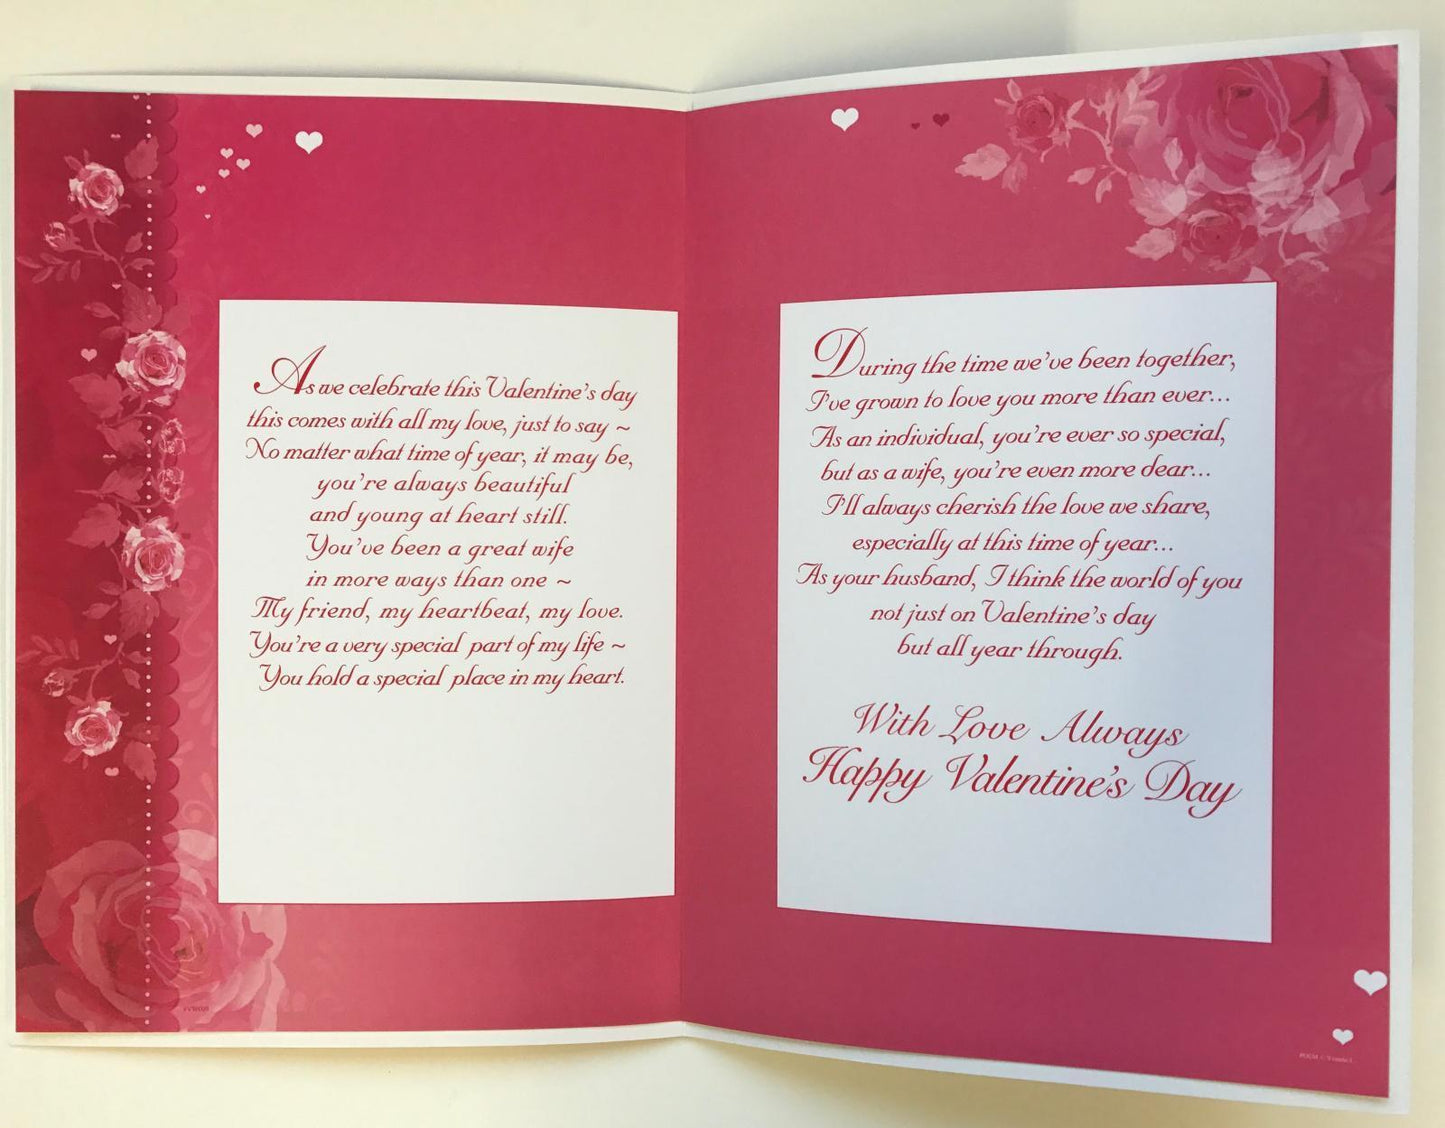 As we celebrate this Valentine's day
this comes with all my love, just to say ~
No matter what time of year, it may be,
you're always beautiful
and young at heart still.
You've been a great wife
in more ways than one ~
My friend, my heartbeat, my love.
You're a very special part of my life ~
You hold a special place in my heart.
During the time we've been together,
I've grown to love you more than ever...
As an individual, you're ever so special,
but as a wife, you're even more dear...
I'll always cherish the love we share,
especially at this time of year...
As your husband, I think the world of you
not just on Valentine's day
but all year through.
With Love Always
Happy Valentine's Day
POEM ©